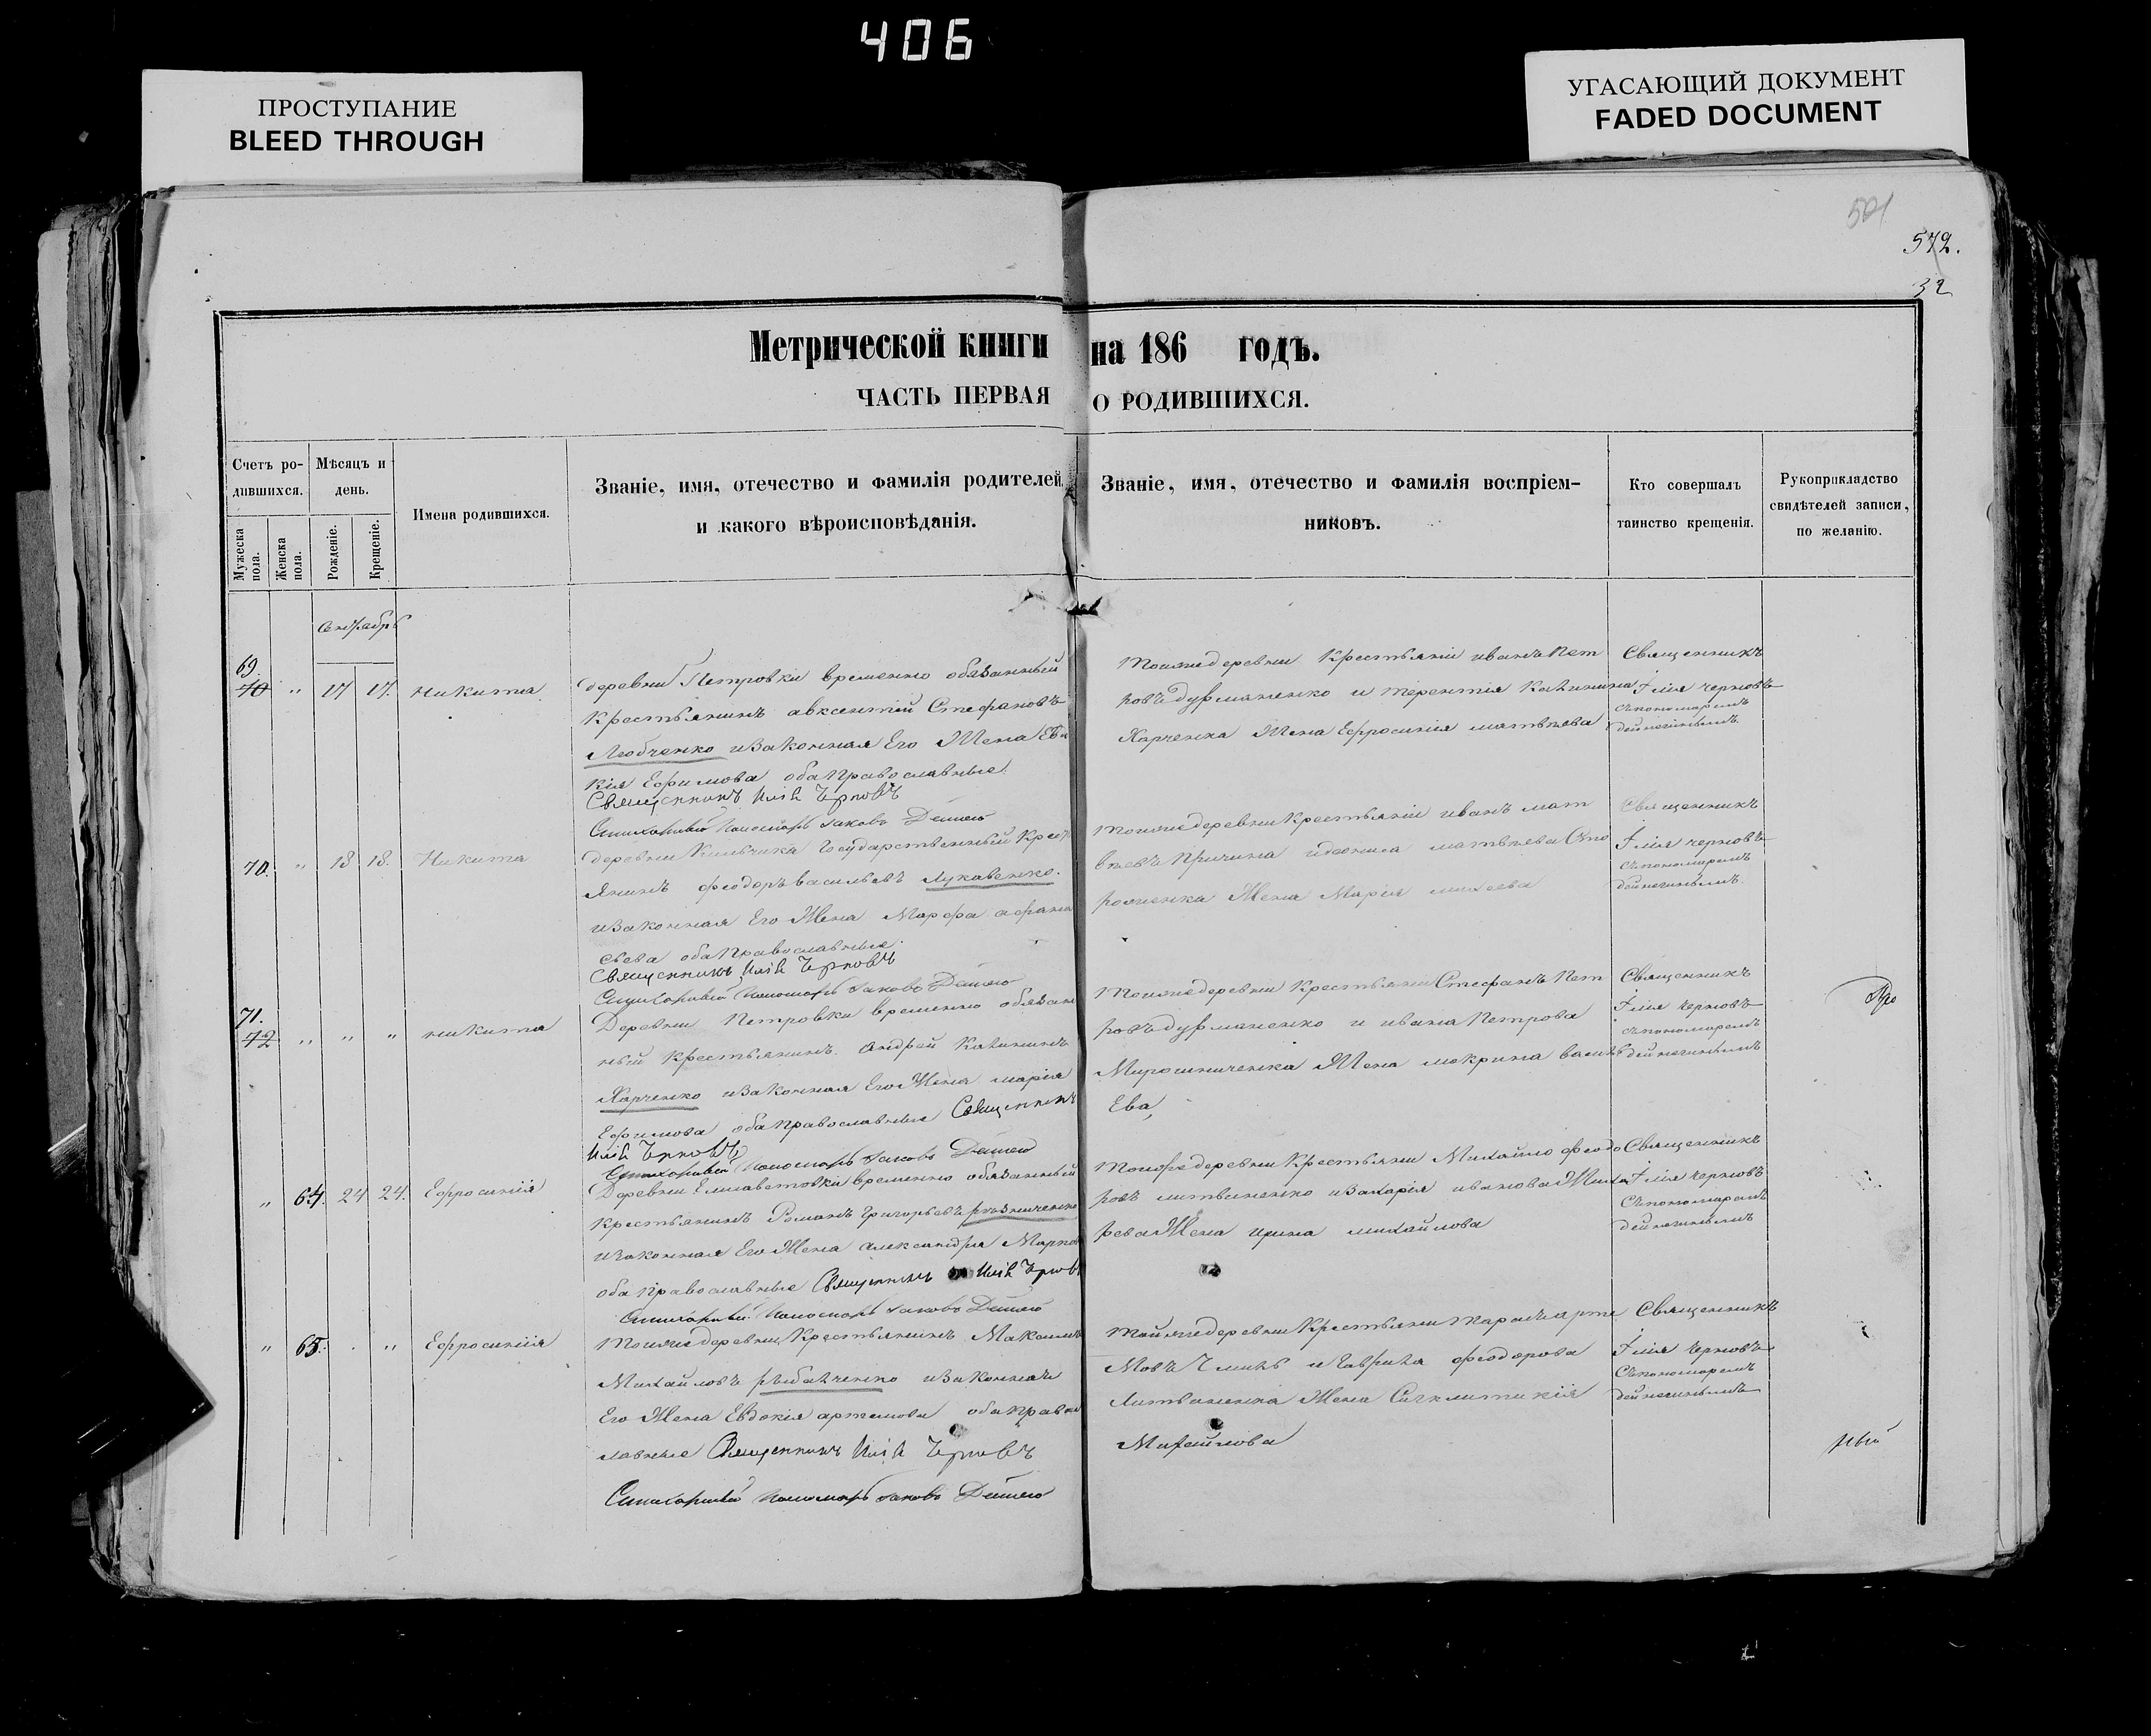 406
ПРОСТУПАНИЕ
BLEED THROUGH
УГАСАЮЩИЙ ДОКУМЕНТ
FADED DOCUMENT
501
572.
32
Метрической книги на 186 годъ.
ЧАСТЬ ПЕРВАЯ О РОДИВШИХСЯ.
Счетъ ро-
дившихся.
Мужеска пола.
Женска пола.
Мѣсяцъ и
день.
Рожденіе.
Крещеніе.
Имена родившихся.
Званіе, имя, отечество и фамилія родителей,
и какого вѣроисповѣданія.
Званіе, имя, отечество и фамилія воспріем-
никовъ.
Кто совершалъ
таинство крещенія.
Рукоприкладство
свидѣтелей записи,
по желанію.
Сентябрь
69
70 " 17 17. Никита
деревни Петровки временно обязанный
Крестьянинъ авксентій Стефановъ
Любченко изаконная Его Жена Ев
кія Ефимова оба Православные
Священникъ Илія Черновъ
Стихарный Пономарь Іаковъ
тоияже деревни Крестьяніи иванъ Пет
ровъ дурманенко и терентія Калинина
Харченка Жена Ефросинія матвѣева
Священникъ
Ілія Черновъ
съпономаремъ
70. " 18 18. Никита
деревни Кильчика Государственный Крест
янинъ феодоръ васильевъ Лукавенко.
изаконная Его Жена Марфа афана
сьева оба Православные.
Священникъ Илія Черновъ
Стихарный Пономарь Іаковъ
тоияже деревни Крестьяніи иванъ мат
вѣевъ Причина матвѣева
Жена Марія михеева
Священникъ
Ілія Черновъ
съпономаремъ
71.
72 " " " Никита
Деревни Петровки временно обязан
ный Крестьянинъ Андрей Калининъ
Харченко изаконная Его Жена марія
Ефимова оба православные Священникъ
Илія Черновъ
Стихарный Пономарь Іаковъ
тоияже деревни Крестьяни Стефанъ Пет
ровъ дурманенко и ивана Петрова
Мирошниченка Жена мокрина василь
Ева,
Священникъ
Ілія Черновъ
съпономаремъ
" 64. 24 24. Ефросинія
Деревни Елисаветовки временно обязанный
Крестьянинъ Романъ Григорьевъ рѣзниченко
изаконная Его Жена александра Марков
оба православные Священникъ Илія Черновъ
Стихарный Пономарь Іаковъ
тоиже деревни Крестьяни Михаило феодо
ровъ литвиненко изахарія иванова
Жена ирина михайлова
Священникъ
Ілія Черновъ
Съпономаремъ
" 65. . " Ефросинія
тоияже деревни Крестьянинъ Максимъ
Михайловъ рыбаченко изаконная
Его Жена Евдокія артемова оба право
славные Священникъ Илія Черновъ
Стихарный Пономарь Іаковъ
тойяже деревни Крестьяни Тарасъ арте
мовъ и Гаврила феодорова
Литвиненка Жена
Михайлова
Священникъ
Ілія Черновъ
Съпономаремъ